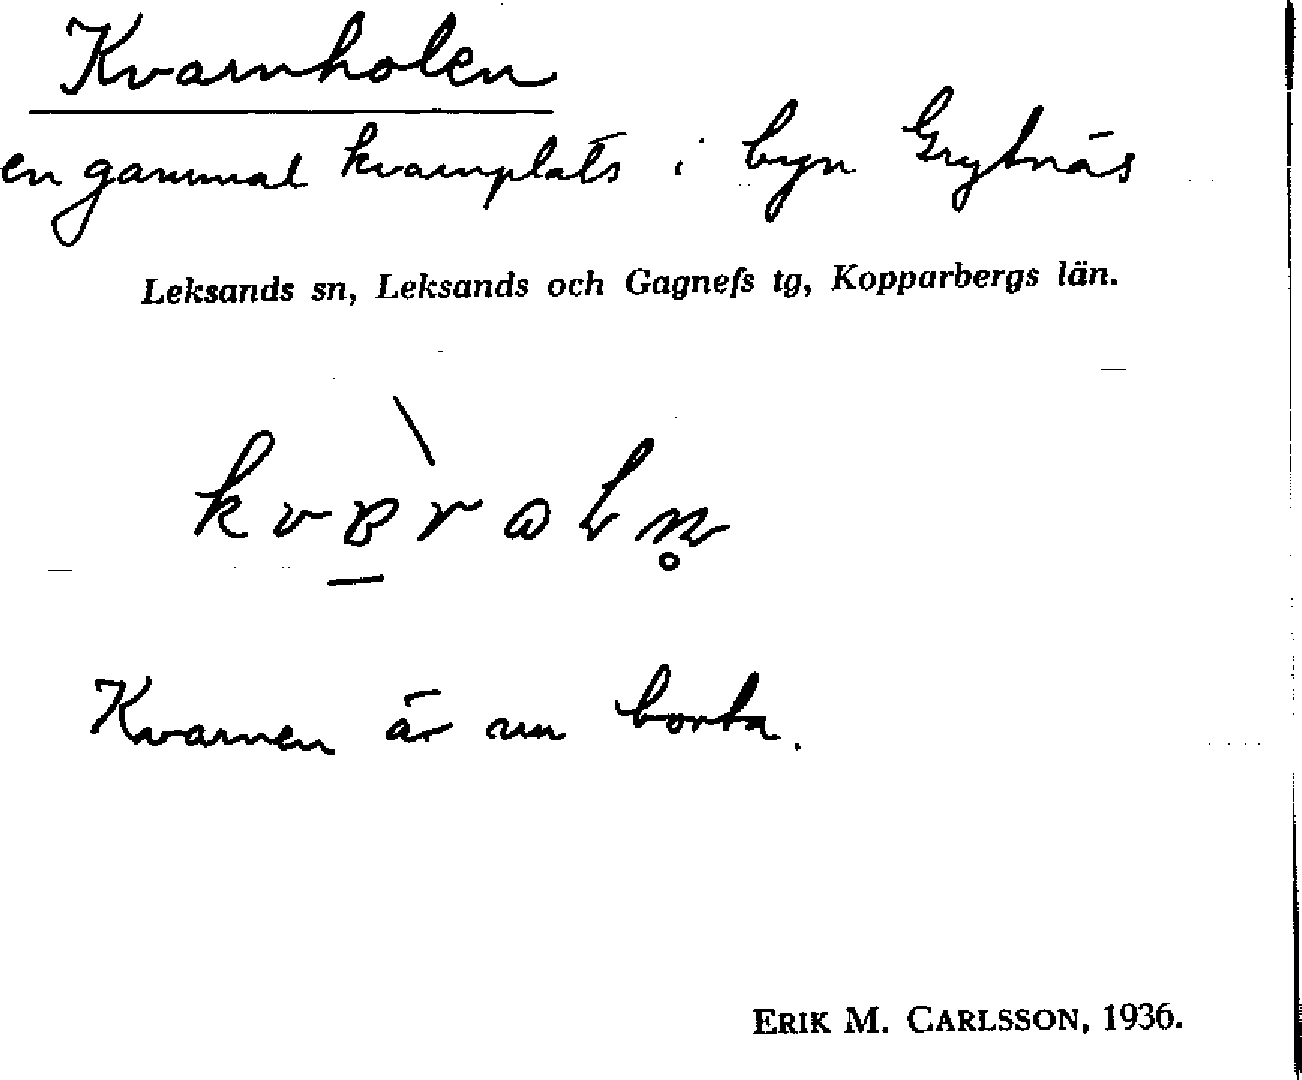 Kvarnholen
en gammal kvarnplats i byn Grytnäs
Leksands sn, Leksands och Gagnefs tg, Kopparbergs län.
Kvarnen är nu borta.
ERIK M. CARLSSON, 1936.